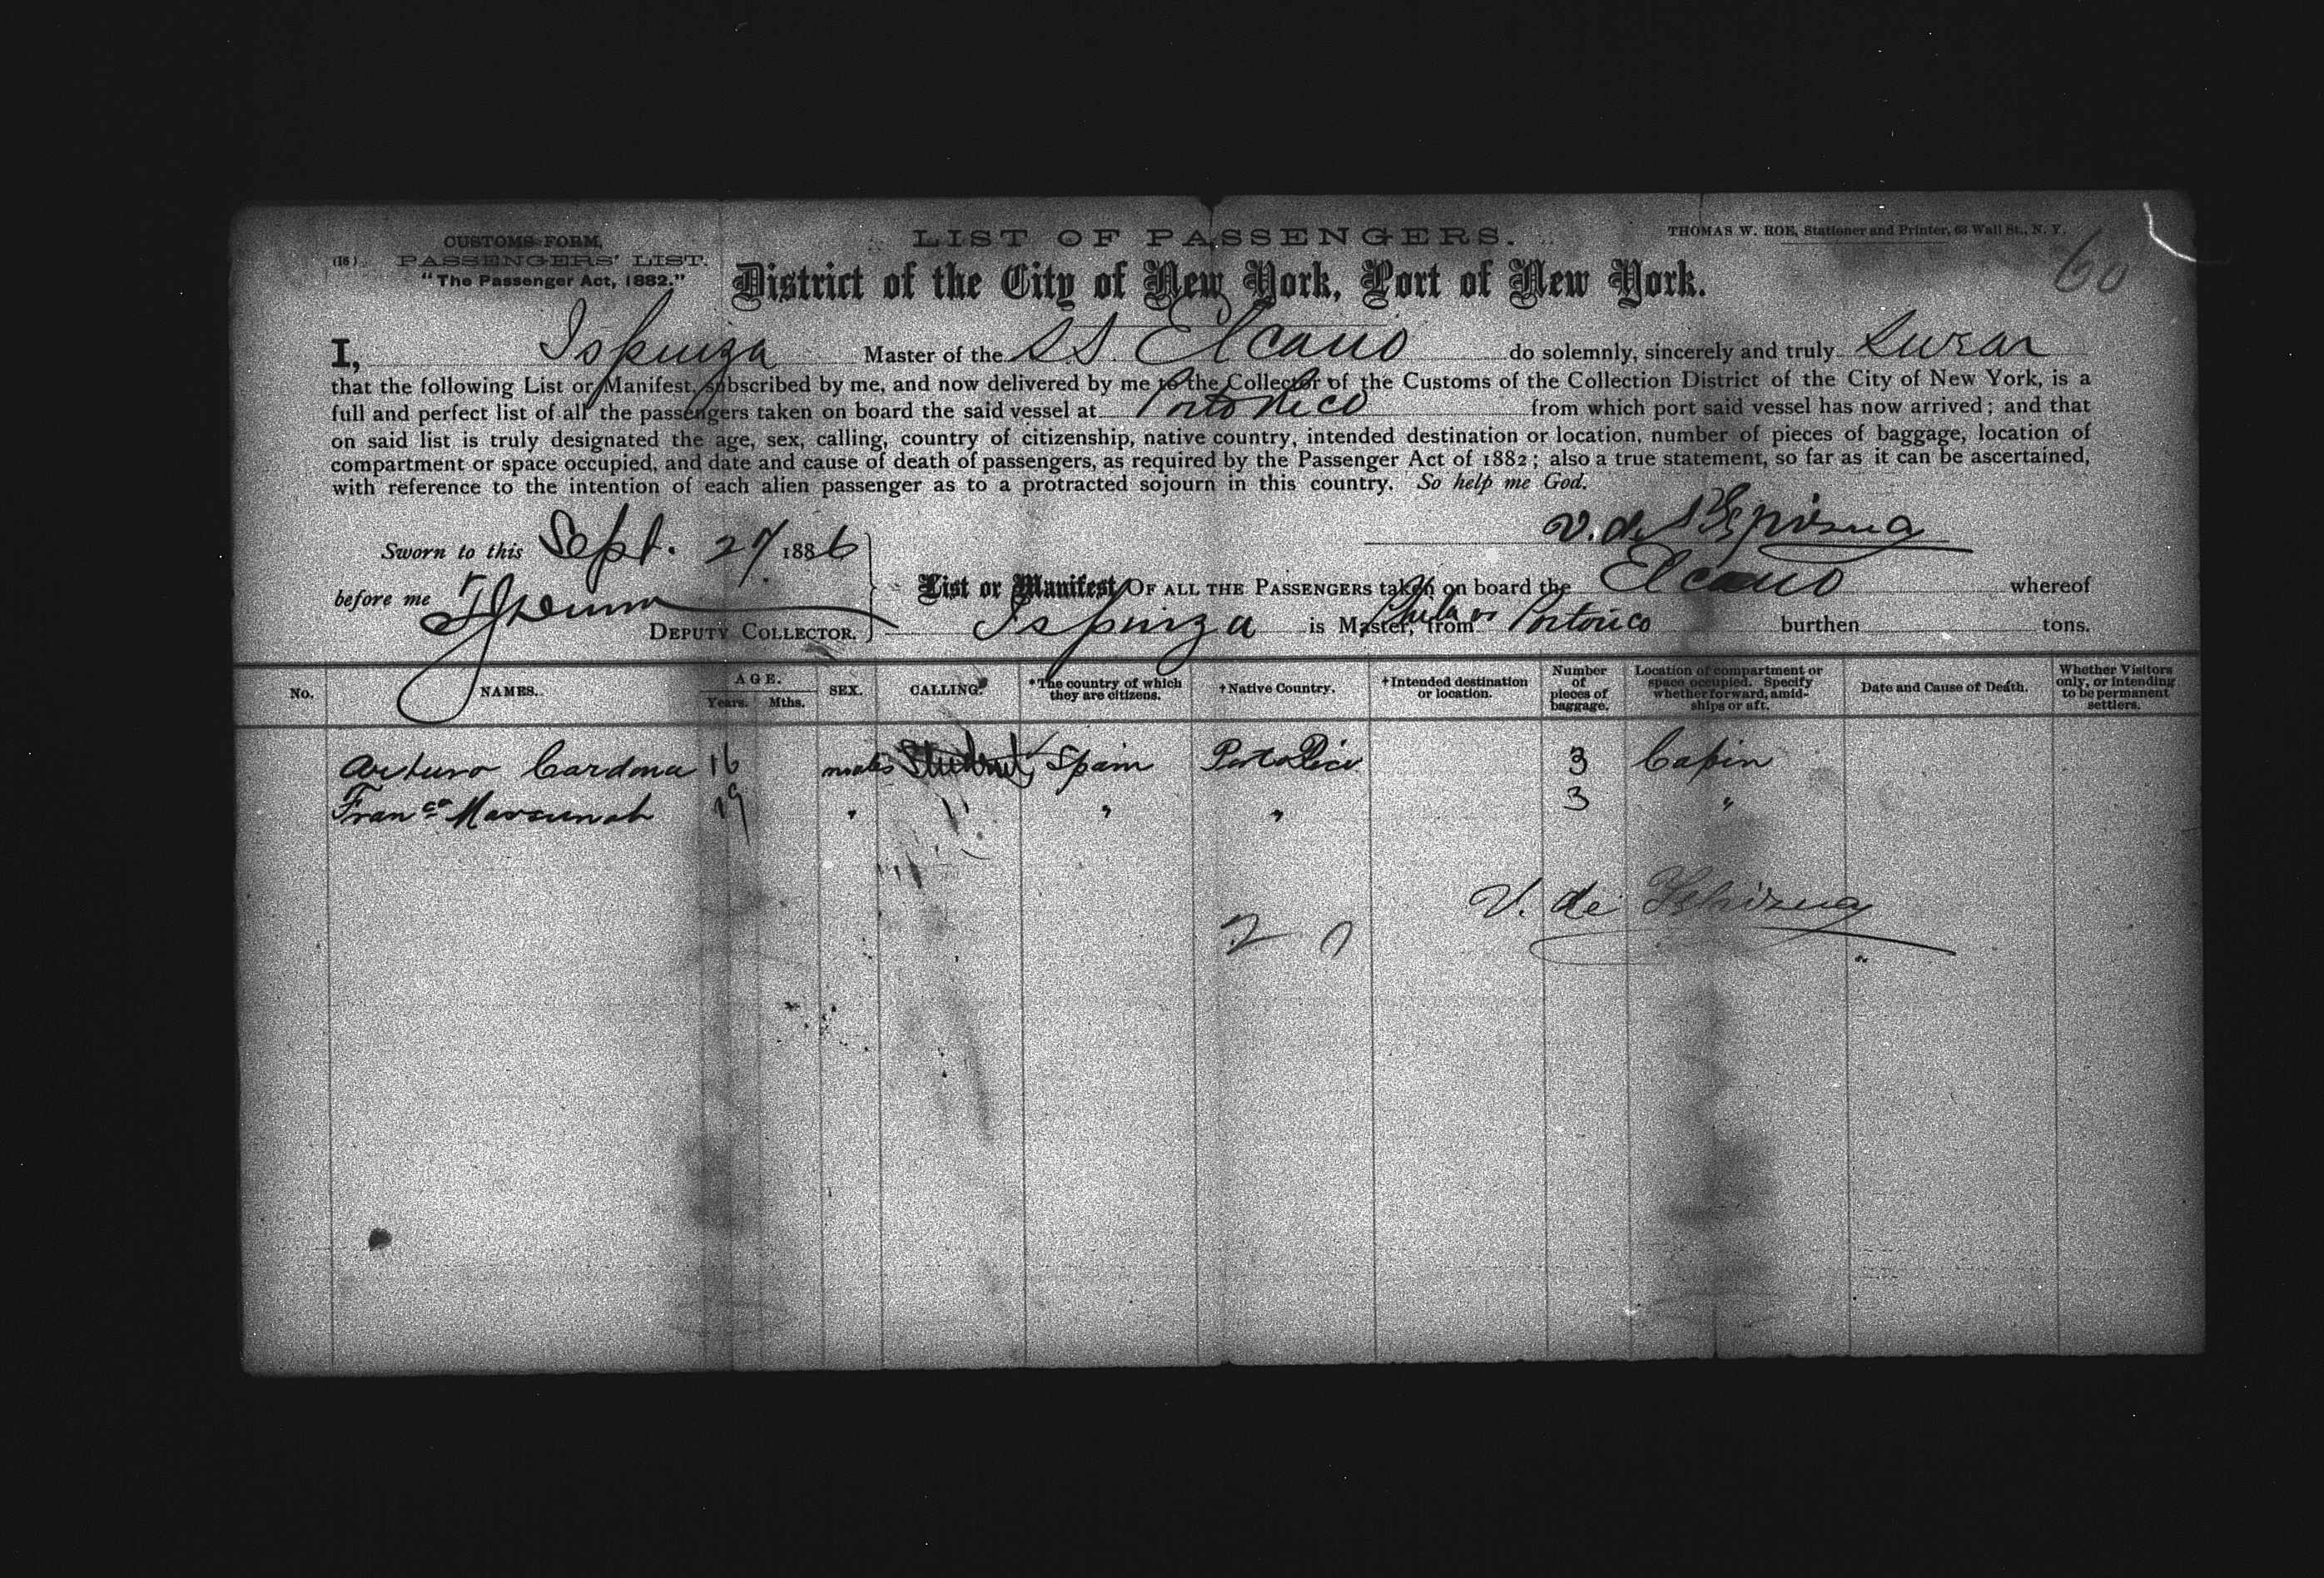 CUSTOMS FORM,
(16) PASSENGERS' LIST.
"The Passenger Act, 1882."
LIST OF PASSENGERS.
THOMAS W. ROE, Stationer and Printer, 63 Wall St., N. Y.
60
District of the City of New York, Port of New York.
I, Ispinza Master of the SS. Elcano do solemnly, sincerely and truly Swear
that the following List or Manifest, subscribed by me, and now delivered by me to the Collector of the Customs of the Collection District of the City of New York, is a
full and perfect list of all the passengers taken on board the said vessel at Porto Rico from which port said vessel has now arrived; and that
on said list is truly designated the age, sex, calling, country of citizenship, native country, intended destination or location, number of pieces of baggage, location of
compartment or space occupied, and date and cause of death of passengers, as required by the Passenger Act of 1882; also a true statement, so far as it can be ascertained,
with reference to the intention of each alien passenger as to a protracted sojourn in this country. So help me God.
V. de
Sworn to this Sept. 27 1886
before me
DEPUTY COLLECTOR.
List or Manifest OF ALL THE PASSENGERS taken on board the Elcano whereof
Ispinza is Master, from Portorico burthen tons.
No. NAMES. AGE. Years. Mths. SEX. CALLING. *The country of which they are citizens. †Native Country. †Intended destination or location. Number of pieces of baggage. Location of compartment or space occupied. Specify whether forward, amidships or aft. Date and Cause of Death. Whether Visitors only, or intending to be permanent settlers.
Arturo Cardona 16 males Student Spain Porto Rico 3 Cabin
Franco 19 " " " " 3 "
V. de
2